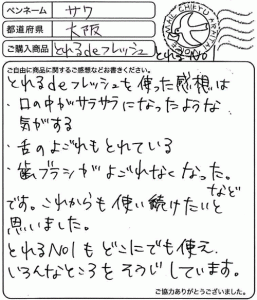 ペンネーム サワ
都道府県 大阪
ご購入商品 とれるdeフレッシュ
とれるNo1
ご自由に商品に関するご感想などお書きください。
とれるdeフレッシュを使った感想は
・口の中がサラサラになったような
気がする
・舌のよごれもとれている
・歯ブラシがよごれなくなった。
など
です。これからも使い続けたいと
思いました。
とれるNO1もどこにでも使え、
いろんなところをそうじしています。
ご協力ありがとうございました。